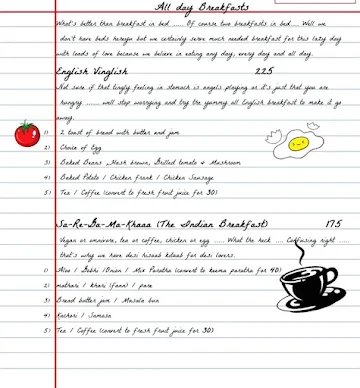 All day Breakfasts
What's better than breakfast in bed ..... Of course two breakfasts in bed.... Well we
don't have beds here but we certainly serve much needed breakfast for this lazy day
with loads of love because we believe in eating any day, every day and all day.
English Vinglish 225
Not sure if that tingly feeling in stomach is angels playing or it's just that you are
hungry ...... well stop worrying and try the yummy all English breakfast to make it go
away.
1) 2 toast of bread with butter and jam
2) Choice of Egg
3) Baked Beans, Hash brown, Grilled tomato & Mushroom
4) Baked Potato / Chicken frank / Chicken Sausage
5) Tea / Coffee (convert to fresh fruit juice for 30)
Sa-Re-Ga-Ma-Khaaa (The Indian Breakfast) 175
Vegan or omnivore, tea or coffee, chicken or egg ..... What the heck .... Confusing right .....
that's why we have desi hisaab kitaab for desi lovers.
1) Aloo / Gobhi / Onion / Mix Paratha (convert to keema paratha for 40)
2) mathari / khari (fann) / pare
3) Bread butter jam / Masala bun
4) Kachori / Samosa
5) Tea / Coffee (convert to fresh fruit juice for 30)